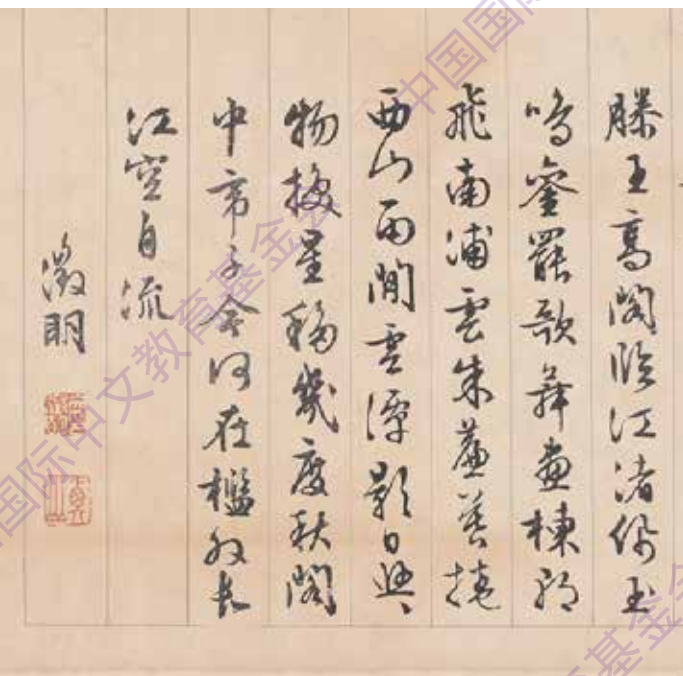 滕王高閣臨江渚佩玉
鳴鑾罷歌舞畫棟朝
飛南浦雲朱簾暮捲
西山雨閒雲潭影日悠〻
物換星移幾度秋閣
中帝子今何在檻外長
江空自流
徵明
中国国际
国际中文教育基金会
基金会